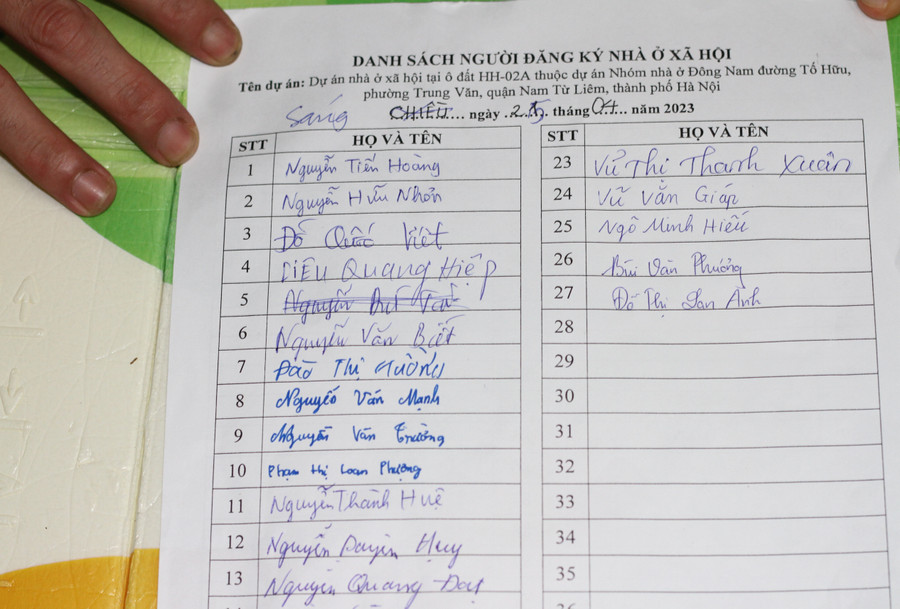 DANH SÁCH NGƯỜI ĐĂNG KÝ NHÀ Ở XÃ HỘI
Tên dự án: Dự án nhà ở xã hội tại ô đất HH-02A thuộc dự án Nhóm nhà ở Đông Nam đường Tố Hữu,
phường Trung Văn, quận Nam Từ Liêm, thành phố Hà Nội
Sáng CHIỀU... ngày ..25.. tháng 04... năm 2023
STT HỌ VÀ TÊN
1 Nguyễn Tiến Hoàng
2 Nguyễn Hữu Nhơn
3 Đỗ Quốc Việt
4 LIÊU QUANG HIỆP
5 Nguyễn
6 Nguyễn Văn Biết
7 Đào Thị Hường
8 Nguyễn Văn Mạnh
9 Nguyễn Văn Trường
10 Phạm Thị Loan Phượng
11 Nguyễn Thành Huệ
12 Nguyễn Duyên Huy
13 Nguyễn Quang Đạt
STT HỌ VÀ TÊN
23 Vũ Thị Thanh Xuân
24 Vũ Văn Giáp
25 Ngô Minh Hiếu
26 Bùi Văn Phương
27 Đỗ Thị Lan Anh
28
29
30
31
32
33
34
35